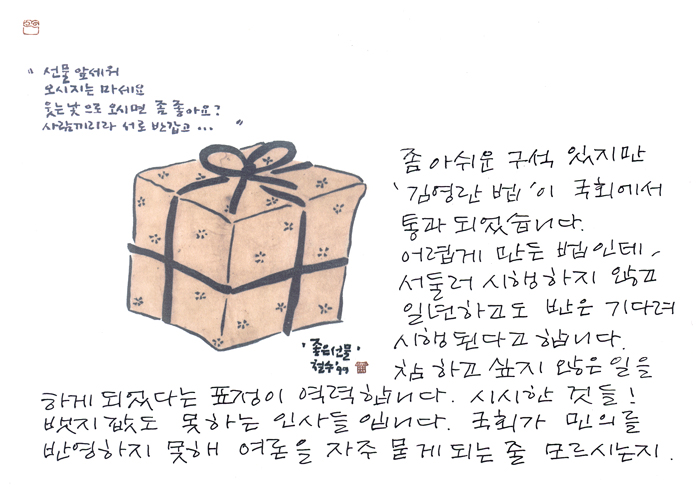 " 선물 앞세워
오시지는 마세요
웃는 낯으로 오시면 좀 좋아요?
사람끼리라 서로 반갑고 ... "
좀 아쉬운 구석 있지만
'김영란 법'이 국회에서
통과 되었습니다.
어렵게 만든 법인데,
서둘러 시행하지 않고
일년하고도 반은 기다려
시행된다고 합니다.
'좋은 선물'
철수 '99
참 하고 싶지 않은 일을
하게 되었다는 표정이 역력합니다. 시시한 것들!
뱃지값도 못하는 인사들입니다. 국회가 민의를
반영하지 못해 여론을 자주 묻게 되는 줄 모르시는지.